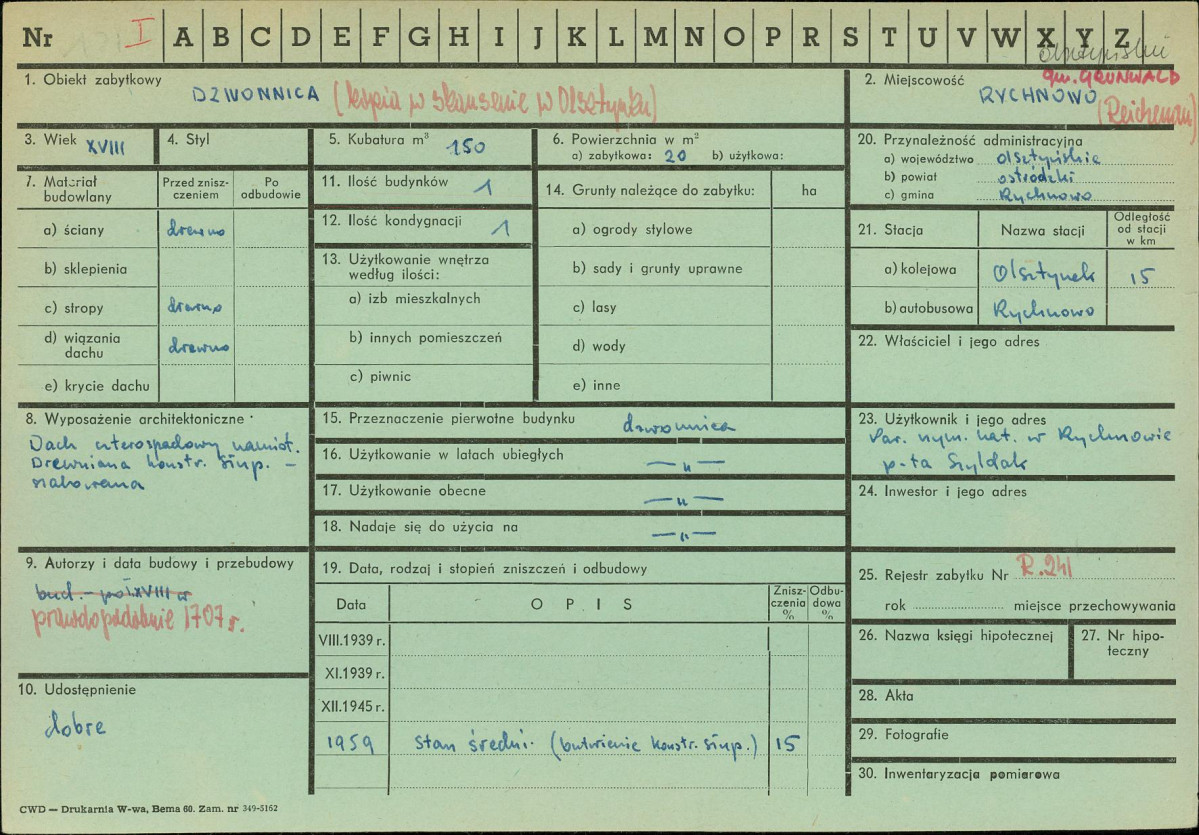 Nr I A B C D E F G H I J K L M N O P R S T U V W X Y Z
1. Obiekt zabytkowy
DZWONNICA (kopia w skansenie w Olsztynku)
2. Miejscowość
gm. GRUNWALD
RYCHNOWO
3. Wiek XVIII
4. Styl
5. Kubatura m³ 150
6. Powierzchnia w m²
a) zabytkowa: 20 b) użytkowa:
20. Przynależność administracyjna
a) województwo olsztyńskie
b) powiat ostródzki
c) gmina Rychnowo
7. Materiał budowlany
Przed zniszczeniem
Po odbudowie
a) ściany drewno
b) sklepienia
c) stropy drewno
d) wiązania dachu drewno
e) krycie dachu
11. Ilość budynków 1
12. Ilość kondygnacji 1
13. Użytkowanie wnętrza
według ilości:
a) izb mieszkalnych
b) innych pomieszczeń
c) piwnic
14. Grunty należące do zabytku: ha
a) ogrody stylowe
b) sady i grunty uprawne
c) lasy
d) wody
e) inne
21. Stacja
Nazwa stacji
Odległość od stacji w km
a) kolejowa Olsztynek 15
b) autobusowa Rychnowo
22. Właściciel i jego adres
8. Wyposażenie architektoniczne
Dach czterospadowy namiot.
Drewniana konstr. słup. –
szalowana
15. Przeznaczenie pierwotne budynku dzwonnica
16. Użytkowanie w latach ubiegłych —„—
17. Użytkowanie obecne —„—
18. Nadaje się do użycia na —„—
23. Użytkownik i jego adres
Par. rzym. kat. w Rychnowie
p-ta Szyldak
24. Inwestor i jego adres
9. Autorzy i data budowy i przebudowy
bud. – poł. XVIII w
prawdopodobnie 1707 r.
19. Data, rodzaj i stopień zniszczeń i odbudowy
Data
O P I S
Zniszczenia %
Odbudowa %
VIII.1939 r.
XI.1939 r.
XII.1945 r.
1959 Stan średni. (butwienie konstr. słup.) 15
25. Rejestr zabytku Nr R.241
rok miejsce przechowywania
26. Nazwa księgi hipotecznej
27. Nr hipoteczny
10. Udostępnienie
dobre
28. Akta
29. Fotografie
30. Inwentaryzacja pomiarowa
CWD — Drukarnia W-wa, Bema 60. Zam. nr 349-5162